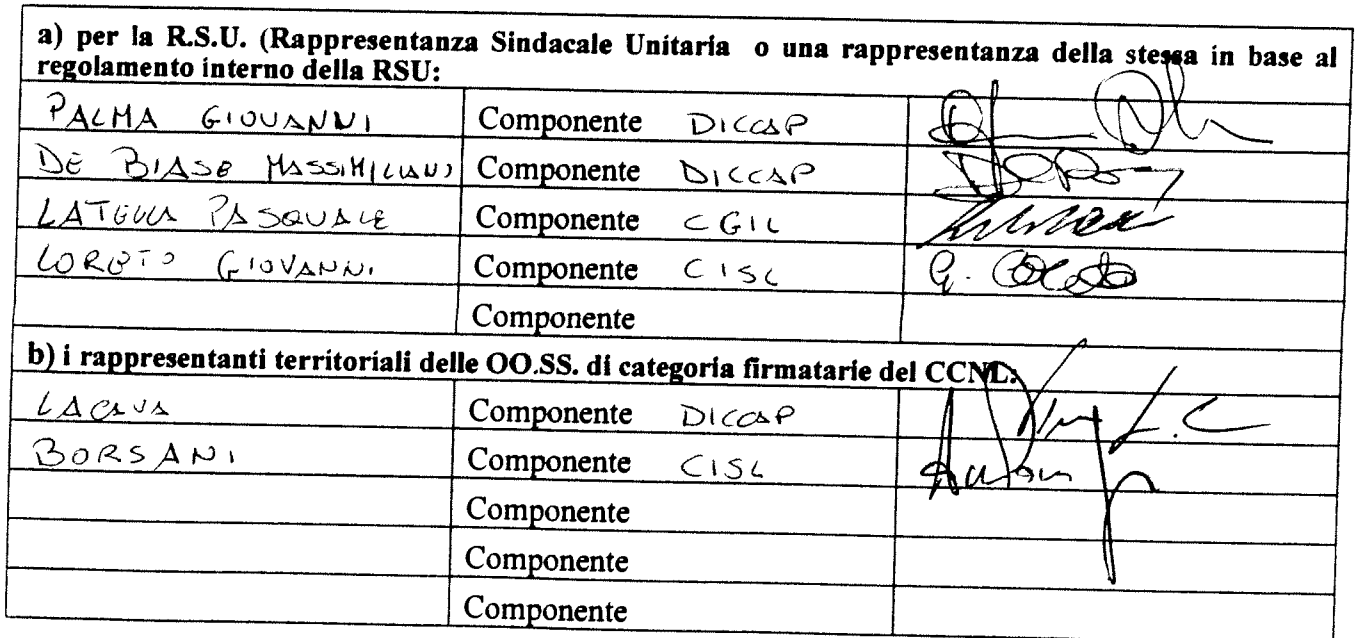 a) per la R.S.U. (Rappresentanza Sindacale Unitaria o una rappresentanza della stessa in base al
regolamento interno della RSU:
PALMA GIOVANNI Componente DICCAP
DE BIASE MASSIMILIANO Componente DICCAP
LATELLA PASQUALE Componente CGIL
LORETO GIOVANNI Componente CISL
Componente
b) i rappresentanti territoriali delle OO.SS. di categoria firmatarie del CCNL:
LACAVA Componente DICCAP
BORSANI Componente CISL
Componente
Componente
Componente